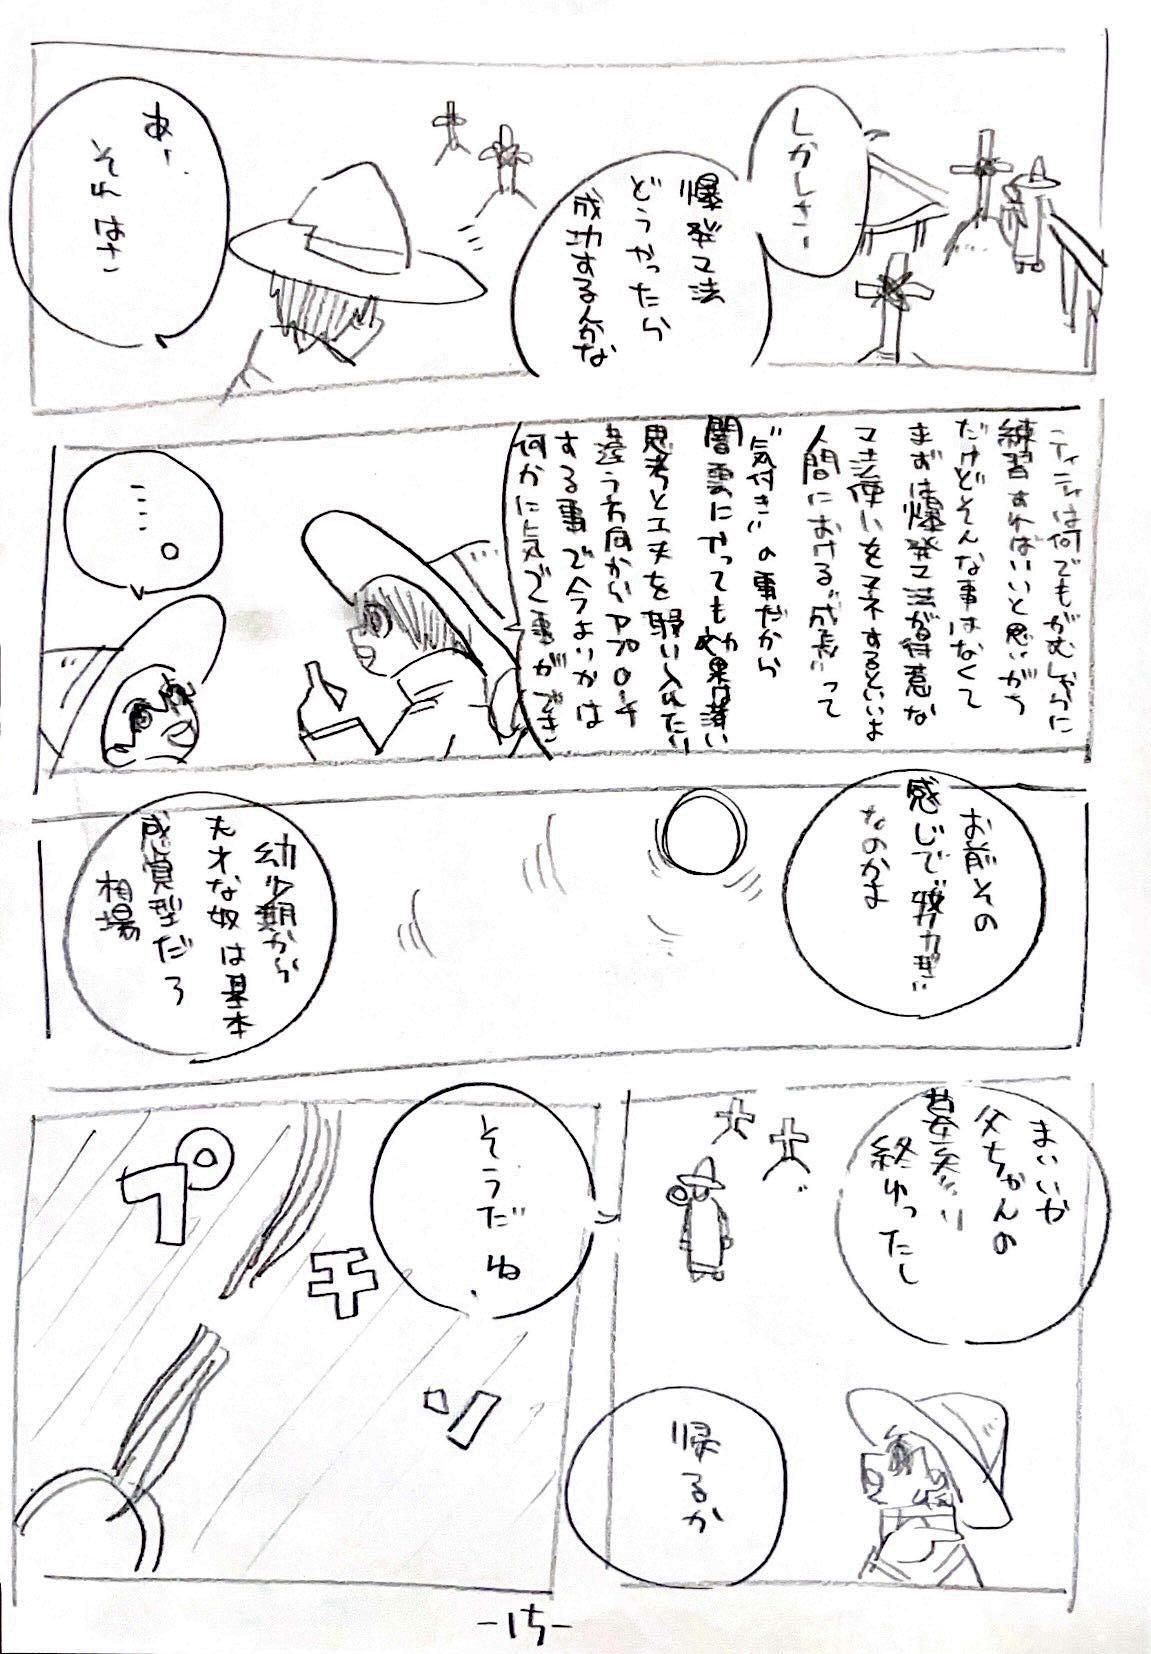 しかしさー
爆発マ法
どうやったら
成功するんかな
あー
それはさ
ティティは何でもがむしゃらに
練習すればいいと思いがち
だけどそんな事はなくて
まずは爆発マ法が得意な
マ法使いをマネするといいよ
人間における“成長”って
“気付き”の事だから
闇雲にやっても効果は薄い
思考と工夫を取り入れたり
違う方向からアプローチ
する事で今よりかは
何かに気づく事ができ
・・・・。
お前その
感じで“努力型”
なのかよ
幼少期から
天才な奴は基本
感覚型だろ
相場
まいいか
父ちゃんの
墓参り
終わったし
帰るか
そうだね
プチッ
-15-